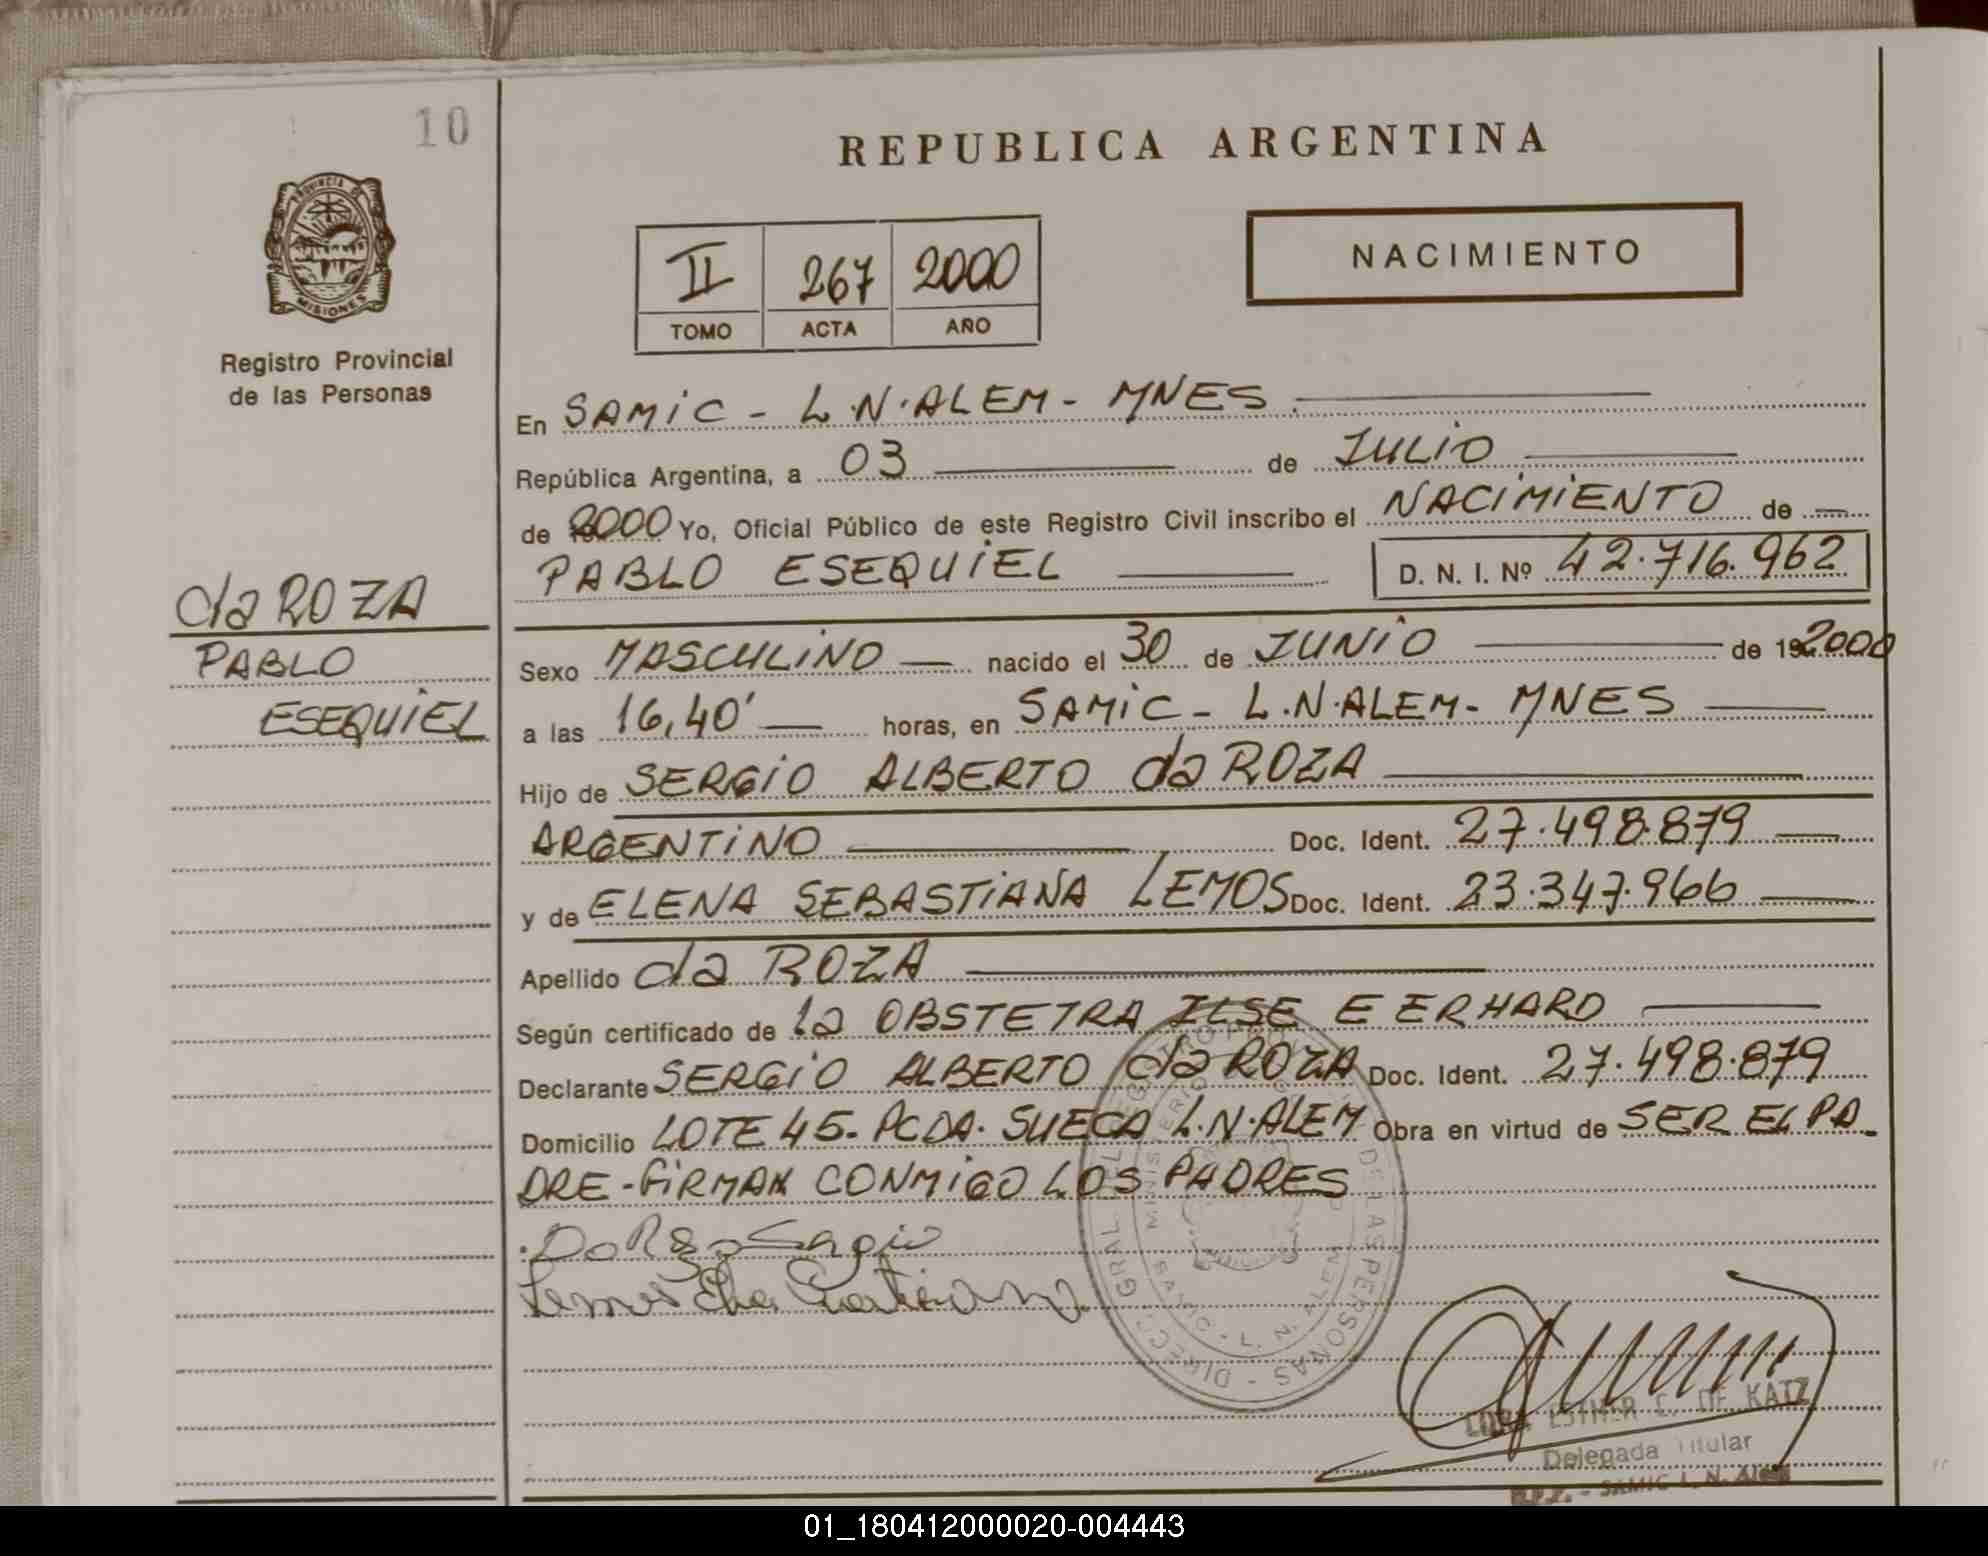 10
REPUBLICA ARGENTINA
PROVINCIA DE
MISIONES
Registro Provincial
de las Personas
NACIMIENTO
II 267 2000
TOMO ACTA AÑO
En SAMiC - L.N.ALEM - MNES.
República Argentina, a 03 de JULiO
de 2000 Yo, Oficial Público de este Registro Civil inscribo el NACiMiENTO de
PABLO ESEQUiEL D. N. I. Nº 42.716.962
da ROZA
PABLO
ESEQUiEL
Sexo MASCULiNO nacido el 30 de JUNiO de 192000
a las 16,40' horas, en SAMiC - L.N.ALEM - MNES
Hijo de SERGiO ALBERTO da ROZA
ARGENTiNO Doc. Ident. 27.498.879
y de ELENA SEBASTiANA LEMOS Doc. Ident. 23.347.966
Apellido da ROZA
Según certificado de la OBSTETRA ILSE E ERHARD
Declarante SERGiO ALBERTO da ROZA Doc. Ident. 27.498.879
Domicilio LOTE 45- PCDA. SUECA L.N.ALEM Obra en virtud de SER EL PA-
DRE - FiRMAN CONMiGO LOS PADRES
DIREC. GRAL. DE LAS PERSONAS
SAMIC - L. N. ALEM
ESTHER C. DE KATZ
Delegada Titular
R.P.P. - SAMIC L. N. Alem
01_180412000020-004443